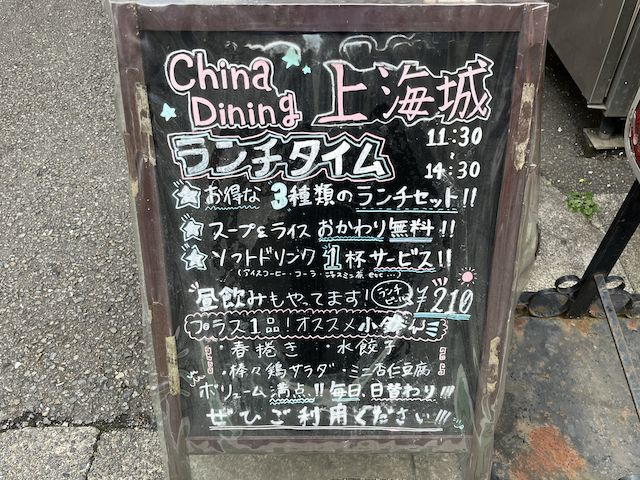 China Dining 上海城
ランチタイム 11:30~14:30
お得な 3種類のランチセット!!
スープ&ライス おかわり無料!!
ソフトドリンク 1杯サービス!!
(アイスコーヒー・コーラ・ジャスミン茶 etc...)
昼飲みもやってます! ランチビール ¥210
プラス1品!オススメ小鉢
・春捲き ・水餃子
・棒々鶏サラダ ・ミニ杏仁豆腐
ボリューム満点!! 毎日、日替わり!!!
ぜひご利用ください!!!